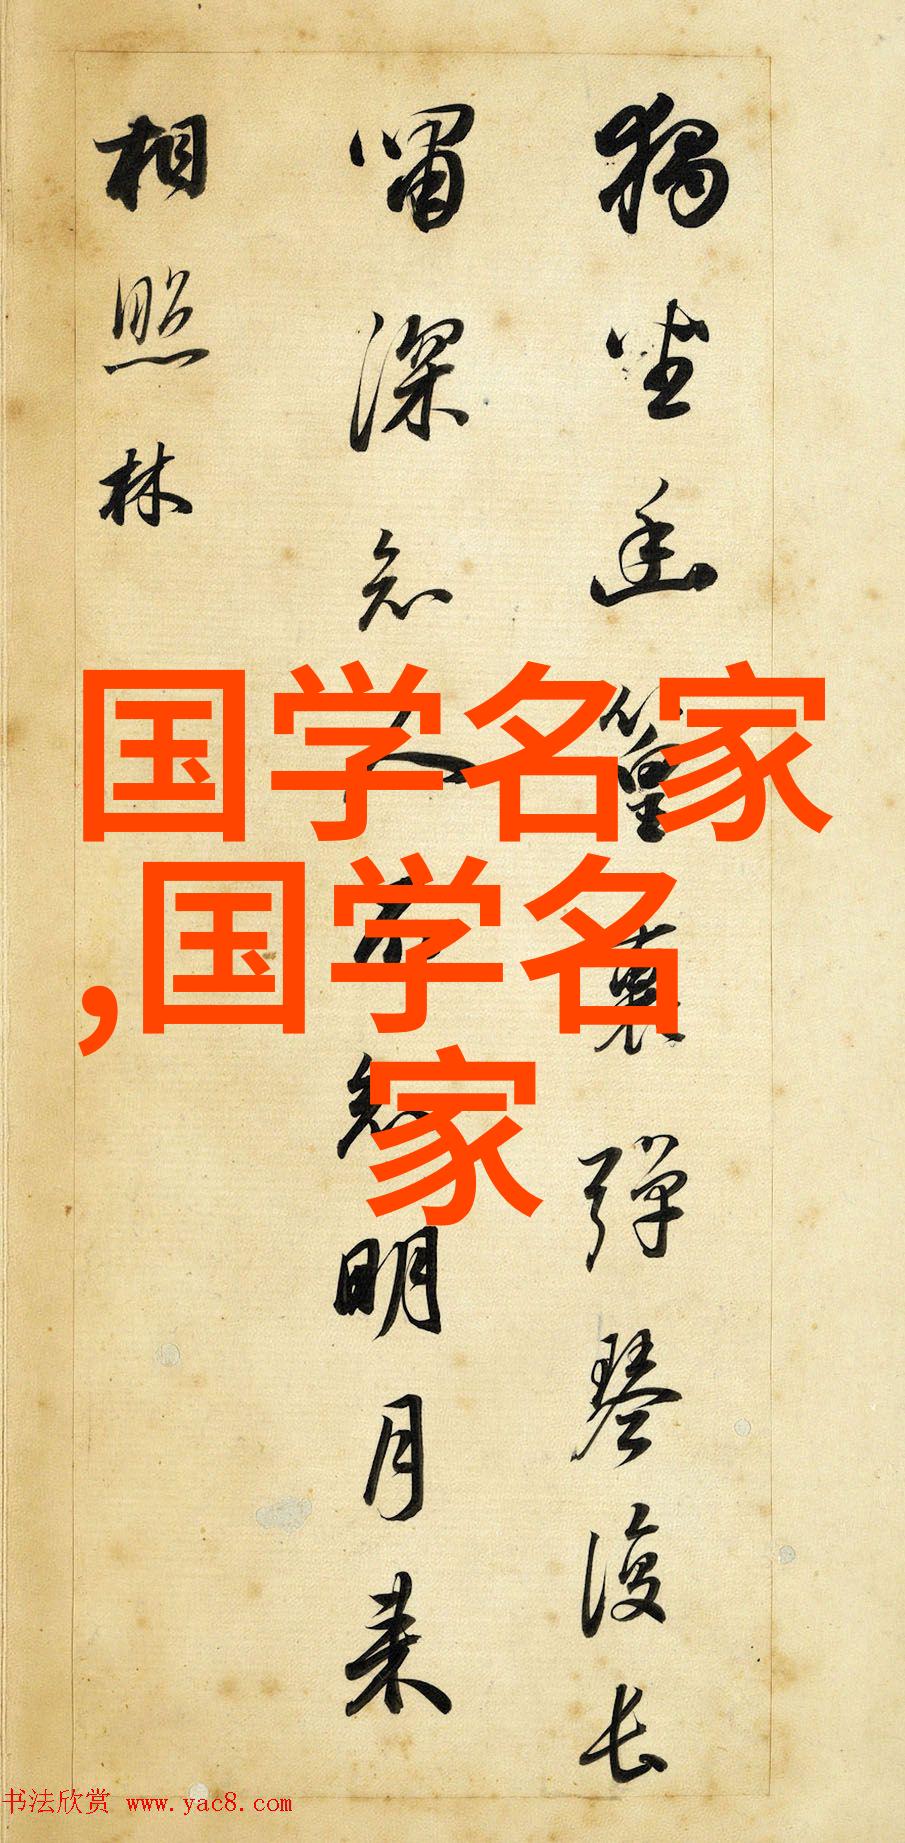 獨坐幽篁裏弹琴復长
嘯深知人不知明月来
相照林
国学名家
,国学名
家
书法欣赏 www.yac8.com